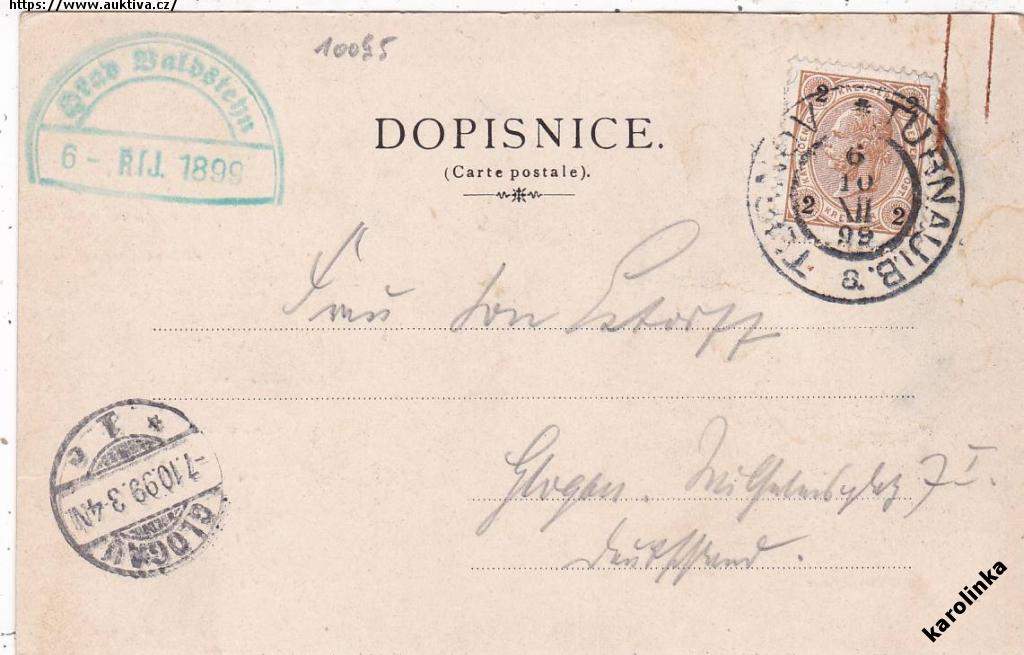 https://www.auktiva.cz/
10095
Hrad Valdstejn
6 - ŘÍJ. 1899
DOPISNICE.
(Carte postale).
2 2 2 2
TURNOV * TURNAU i. B.
6
10
XII
99
a
Frau von
Glogau. Wilhelmsplatz 7 I.
Deutschland.
GLOGAU * 1 c
-7.10.99.3-4N
karolinka